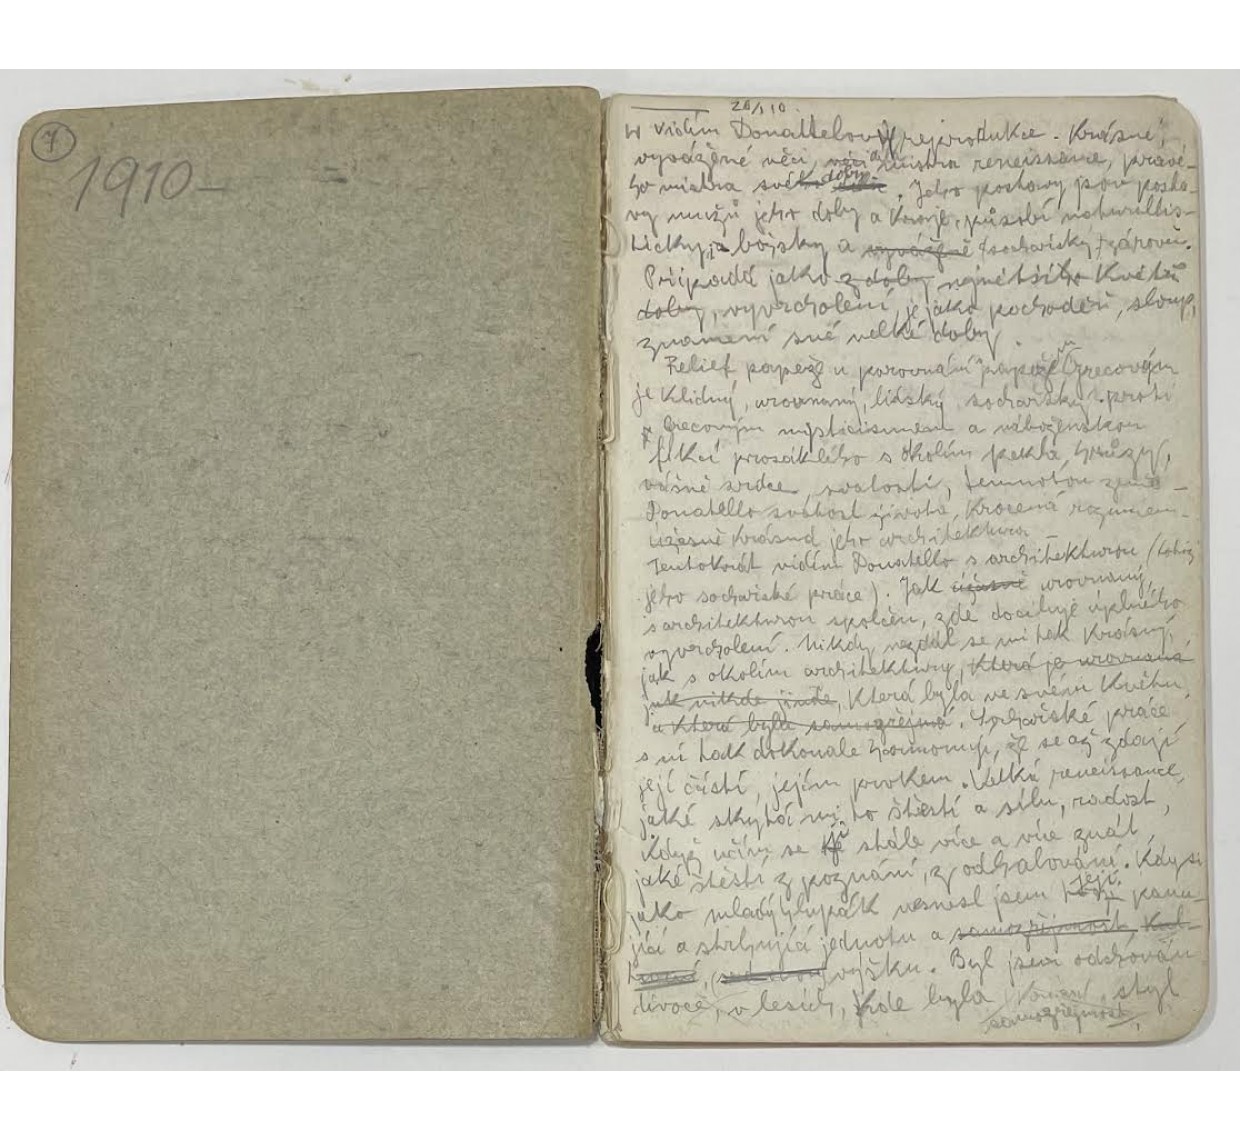 7
1910 –
26/1 10.
vidím Donatellovy reprodukce. Krásné,
vyvážené věci, věci mistra reneissance, pravé-
ho mistra své doby. Jeho postavy jsou posta-
vy mužů jeho doby a kraje, působí naturallis-
ticky, a bojsky a vyváženě sochařsky zároveň.
Připadá jako z doby největšího květu
doby, vyvrcholení, je jako pochodeň, sloup,
znamení své velké doby.
Relief papeže u porovnání papeže Grecovým
je klidný, urovnaný, lidský, sochařský proti
Grecovým mysticismem a náboženskou
prosáklého s okolím pekla, hrůzy,
vášně srdce, svatostí, temnotou země –
Donatello svátost života, krocená rozumem.
úžasně krásná jeho architektura –
Tentokrát vidím Donatello s architekturou (totiž
jeho sochařské práce). Jak úžasně urovnaný,
s architekturou společn, zde dociluje úplného
vyvrcholení. Nikdy nezdál se mi tak krásný,
jak s okolím architektury, která je urovnaná
jak nikde jinde, která byla ve svém květu
a která byla samozřejmá. Sochařské práce
s ní tak dokonale harmonují, že se až zdají
její částí, jejím prvkem. Velká reneissance,
jaké skýtá mi to štěstí a sílu, radost,
když učím se ji stále více a více znát,
jaké štěstí z poznání, z odhalování. Kdysi
jako mladý hlupák nesnesl jsem její panu-
jící a strhující jednotu a samozřejmost, kul-
turní, výšku. Byl jsem odchován
divoce, v lesích, kde byla styl
samozřejmost,